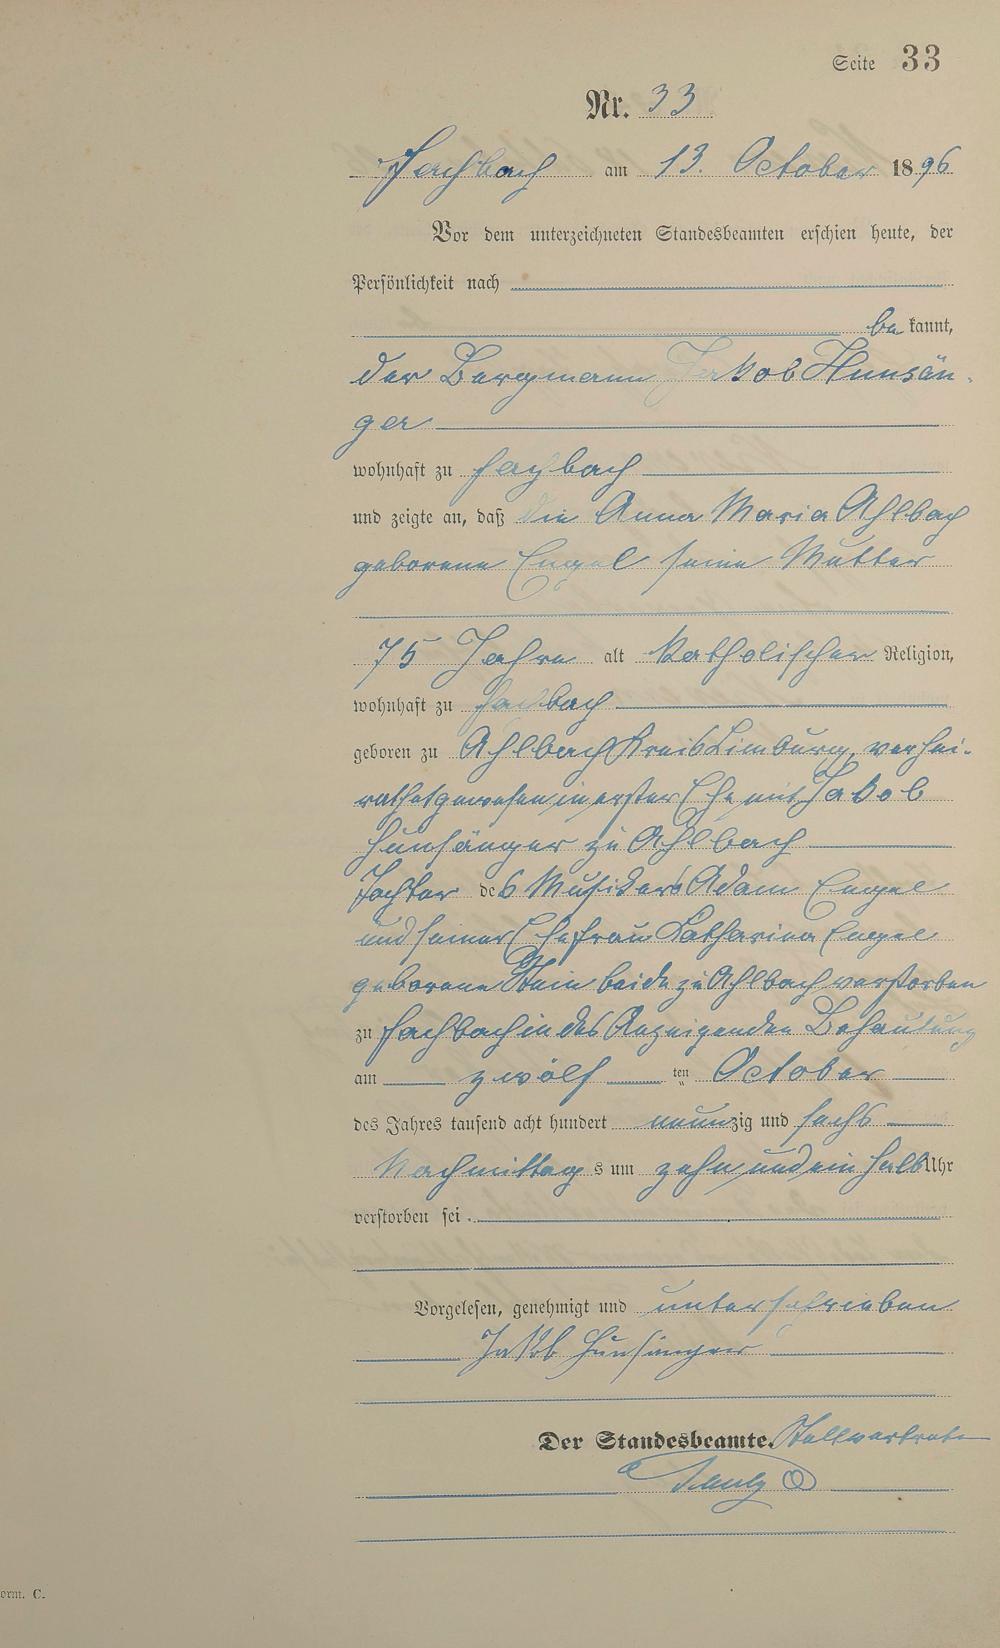 Seite 33
Nr. 33
Fachbach am 13. October 1896
Vor dem unterzeichneten Standesbeamten erschien heute, der
Persönlichkeit nach
bekannt,
der Bergmann Jakob Hunsän-
ger
wohnhaft zu Fachbach
und zeigte an, daß die Anna Maria Ahlbach
geborene Engel seine Mutter
75 Jahre alt katholischer Religion,
wohnhaft zu Fachbach
geboren zu Ahlbach Kreis Limburg, verhei-
rathet gewesen in erster Ehe mit Jakob
Hunsänger zu Ahlbach
Tochter des Musikers Adam Engel
und seiner Ehefrau Katharina Engel
geborene Stein beide zu Ahlbach verstorben
zu Fachbach in des Anzeigenden Behausung
am zwölften October
des Jahres tausend acht hundert neunzig und sechs
Nachmittags um zehn und ein halb Uhr
verstorben sei.
Vorgelesen, genehmigt und unterschrieben
Jakob Hunsänger
Der Standesbeamte. Stellvertreter
orm. C.